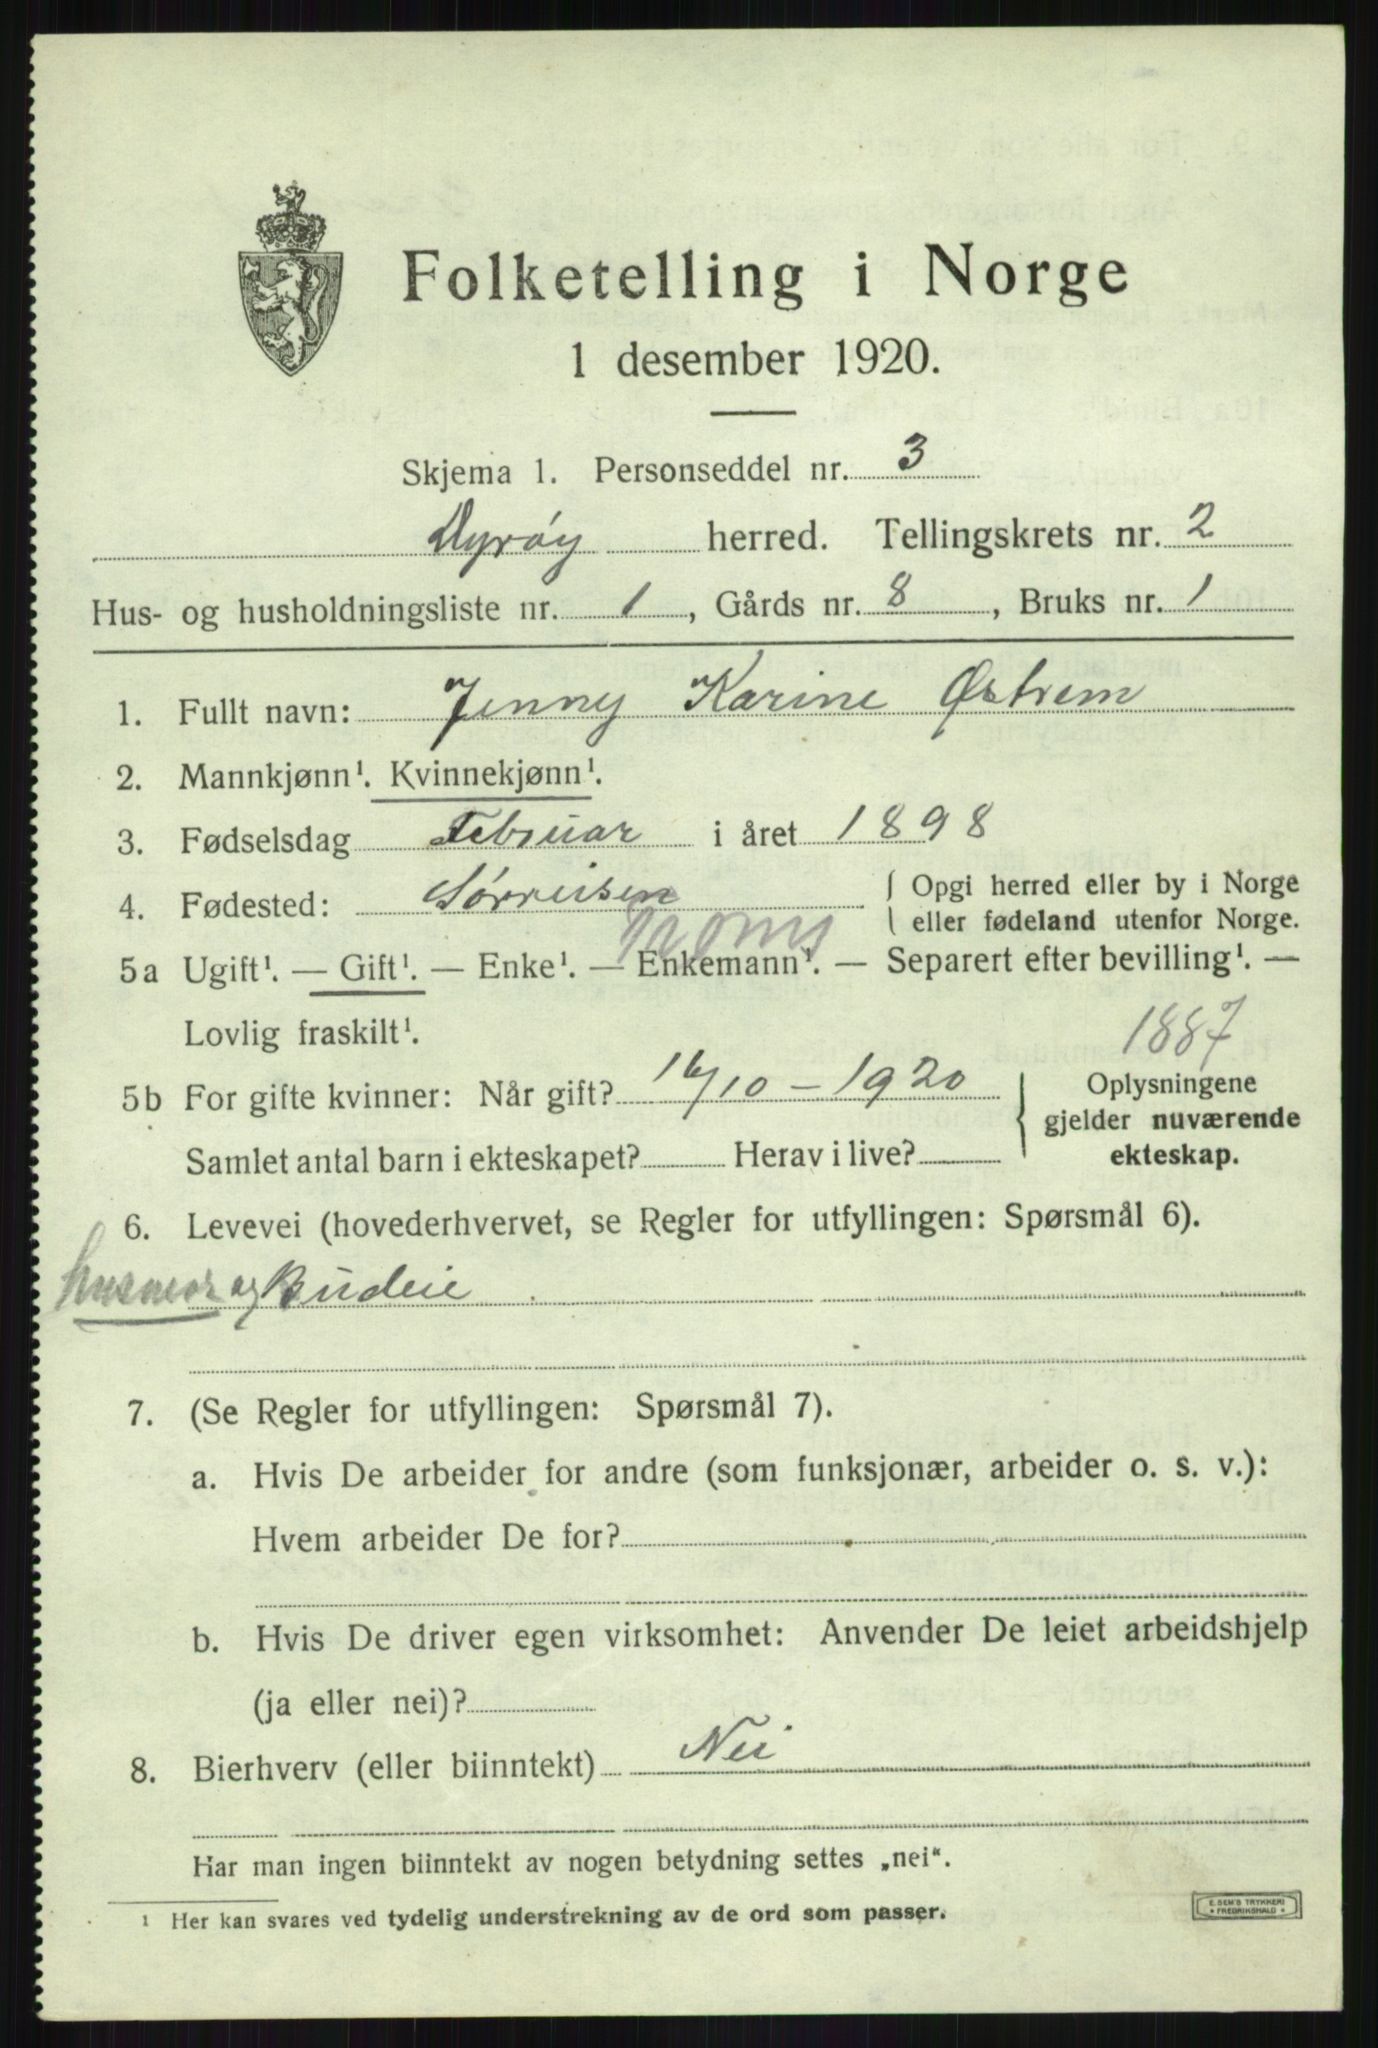 Folketelling i Norge
1 desember 1920.
Skjema 1. Personseddel nr. 3
Dyrøy herred. Tellingskrets nr. 2
Hus- og husholdningsliste nr. 1, Gårds nr. 8, Bruks nr. 1
1. Fullt navn: Jenny Karine Østrem
2. Mannkjønn¹. Kvinnekjønn¹.
3. Fødselsdag Februar i året 1898
4. Fødested: Sørreisen { Opgi herred eller by i Norge
eller fødeland utenfor Norge.
Troms
5a Ugift¹. — Gift¹. — Enke¹. — Enkemann¹. — Separert efter bevilling¹. —
Lovlig fraskilt¹.
1887
5b For gifte kvinner: Når gift? 16/10 – 1920 { Oplysningene
gjelder nuværende
Samlet antal barn i ekteskapet? Herav i live? ekteskap.
6. Levevei (hovederhvervet, se Regler for utfyllingen: Spørsmål 6).
husmor og Budeie
7. (Se Regler for utfyllingen: Spørsmål 7).
a. Hvis De arbeider for andre (som funksjonær, arbeider o. s. v.):
Hvem arbeider De for?
b. Hvis De driver egen virksomhet: Anvender De leiet arbeidshjelp
(ja eller nei)?
8. Bierhverv (eller biinntekt) Nei
Har man ingen biinntekt av nogen betydning settes „nei“.
¹ Her kan svares ved tydelig understrekning av de ord som passer.
E. SEM'S TRYKKERI
• FREDRIKSHALD •